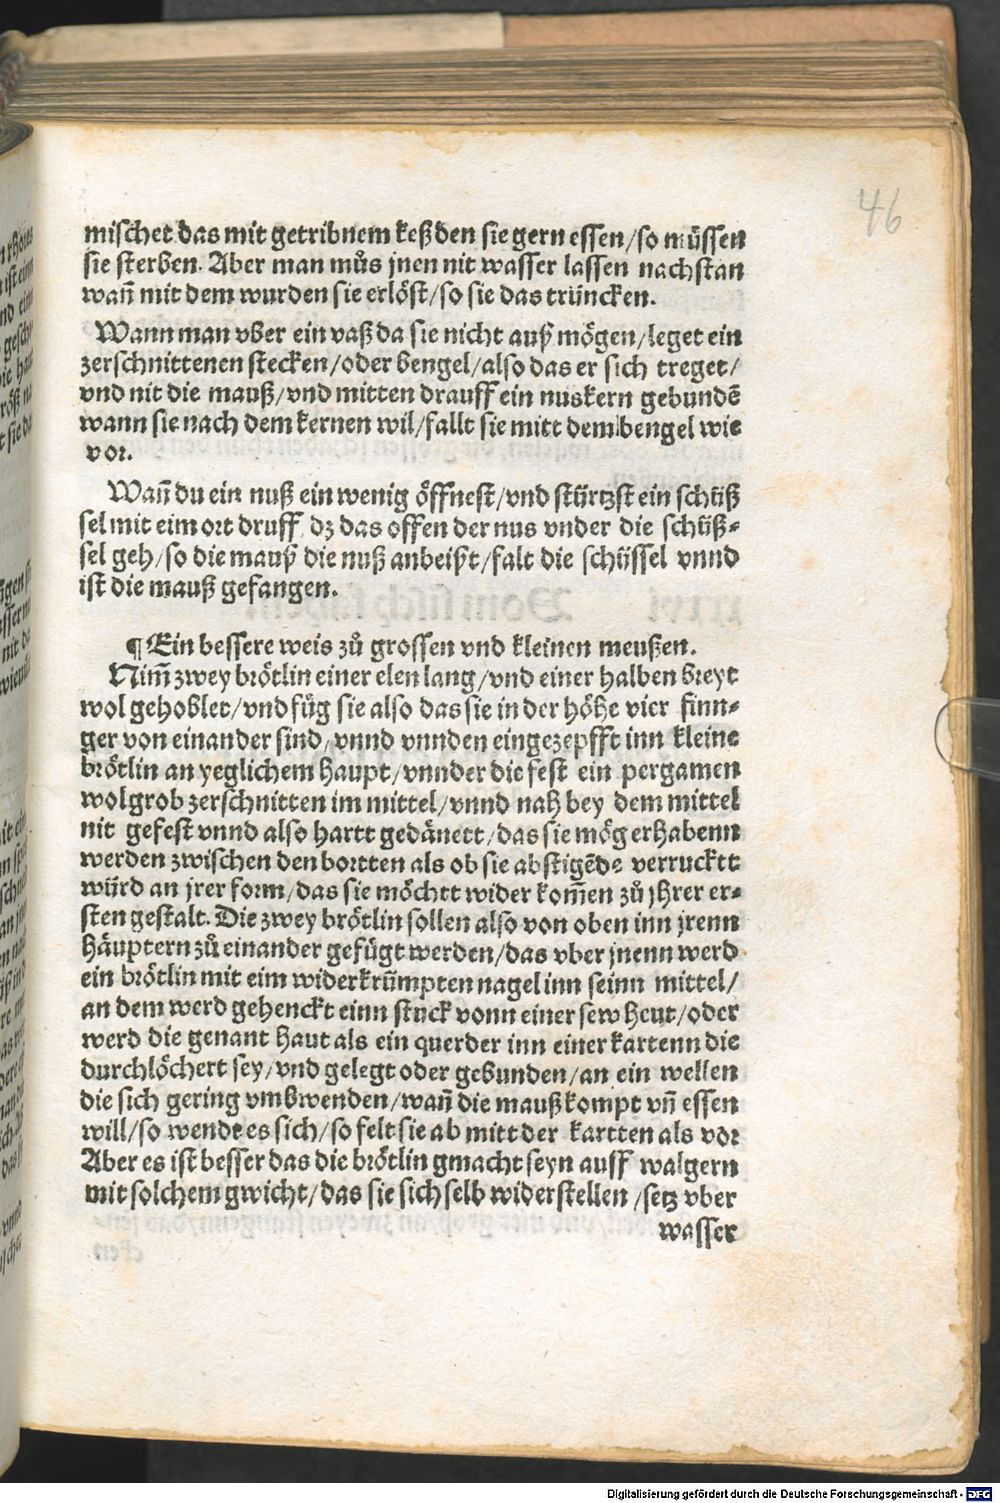 46
mischet das mit getribnem keß den sie gern essen/so müssen
sie sterben. Aber man můs jnen nit wasser lassen nachstan
wañ mit dem wurden sie erlöst/so sie das trüncken.
Wann man vber ein vaß da sie nicht auß mögen/leget ein
zerschnittenen stecken/oder bengel/also das er sich treget/
vnd nit die mauß/vnd mitten drauff ein nuskern gebundē
wann sie nach dem kernen wil/fallt sie mitt dem bengel wie
vor.
Wañ du ein nuß ein wenig öffnest/vnd stürtzst ein schüß
sel mit eim ort druff dz das offen der nus vnder die schüß⸗
sel geh/so die mauß die nuß anbeißt/falt die schüssel vnnd
ist die mauß gefangen.
¶ Ein bessere weis zů grossen vnd kleinen meußen.
Nim̃ zwey brötlin einer elen lang/vnd einer halben breyt
wol gehoblet/vnd füg sie also das sie in der höhe vier finn⸗
ger von einander sind/vnnd vnnden eingezepfft inn kleine
brötlin an yeglichem haupt/vnnder die fest ein pergamen
wolgrob zerschnitten im mittel/vnnd nah bey dem mittel
nit gefest vnnd also hartt gedänett/das sie mög erhabenn
werden zwischen den bortten als ob sie abstigēde verrucktt
würd an jrer form/das sie möchtt wider kom̃en zů jhrer er⸗
sten gestalt. Die zwey brötlin sollen also von oben inn jrenn
häuptern zů einander gefügt werden/das vber jnenn werd
ein brötlin mit eim widerkrūmpten nagel inn seinn mittel/
an dem werd gehenckt einn stuck vonn einer sew heut/oder
werd die genant haut als ein querder inn einer kartenn die
durchlöchert sey/vnd gelegt oder gebunden/an ein wellen
die sich gering vmbwenden/wañ die mauß kompt vñ essen
will/so wendt es sich/so felt sie ab mitt der kartten als vor
Aber es ist besser das die brötlin gmacht seyn auff walgern
mit solchem gwicht/das sie sich selb widerstellen/setz vber
wasser
Digitalisierung gefördert durch die Deutsche Forschungsgemeinschaft - DFG